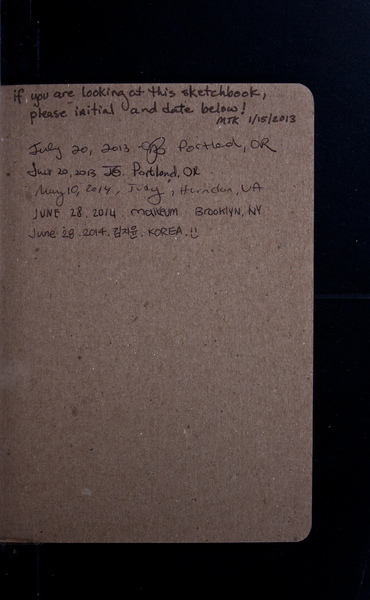 if you are looking at this sketchbook,
please initial and date below!
MTK 1/15/2013
July 20, 2013 Portland, OR
JULY 20, 2013 JG. Portland, OR.
May 10, 2014, Judy, Herndon, VA
JUNE 28. 2014 BROOKLYN, NY
June 28. 2014. 김지윤. KOREA.